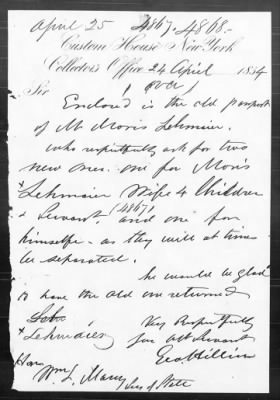 April 25 4867.4868.-
Custom House New York
Collectors Office 24 April 1854
Sir
Enclosed is the old passport
of Mr Morris Lehmaier.
who respectfully ask for two
new ones. one for Morris
Lehmaier Wife 4 Children
& Servant, and one for (4867)
himself - as they will at times
be separated.
he would be glad
to have the old one returned
Very Respectfully
x Lehmaier for Obt Servant
Hon
Wm. L. Marcy Secy of State